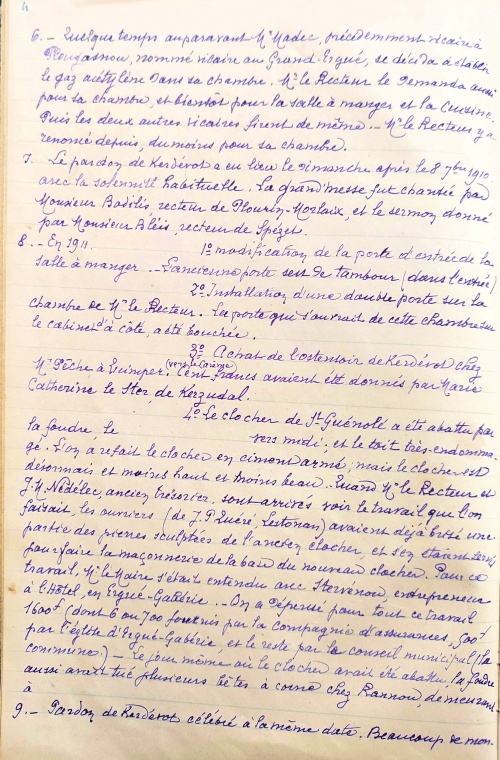 4
6. - Quelque temps auparavant Mr Madec, précédemment vicaire à
Plougasnou, nommé vicaire au Grand-Ergué, se décida à établir
le gaz acétylène dans sa chambre. Mr le Recteur le demanda aussi
pour sa chambre, et bientôt pour la salle à manger et la cuisine.
Puis les deux autres vicaires firent de même. - Mr le Recteur y a
renoncé depuis, du moins pour sa chambre.
7. Le pardon de Kerdévot a eu lieu le Dimanche après le 8 7bre 1910
avec la solennité habituelle. La grand'messe fut chantée par
Monsieur Bodilis recteur de Plourin-Morlaix, et le sermon donné
par Monsieur Bléis, recteur de Spézet.
8. - En 1911. 1º modification de la porte d'entrée de la
salle à manger. - L'ancienne porte sert de tambour (dans l'entrée)
2º Installation d'une double porte sur la
chambre de Mr le Recteur. La porte qui s'ouvrait de cette chambre sur
le cabinet d'à côté, a été bouchée.
3º Achat de l'ostensoir de Kerdévot chez
Mr Pêche à Quimper. (vers le Carême) Cent francs avaient été donnés par Marie
Catherine Le Ster de Kerzudal.
4º Le clocher de St Guénolé a été abattu par
la foudre, le vers midi ; et le toit très-endomma-
gé. L'on a refait le clocher en ciment armé, mais le clocher est
désormais et moins haut et moins beau. Quand Mr le Recteur et
J. M. Nédélec, ancien trésorier, sont arrivés voir le travail que l'on
faisait, les ouvriers (de J. P. Quéré, Lestonan) avaient déjà brisé une
partie des pierres sculptées de l'ancien clocher, et s'en étaient servi
pour faire la maçonnerie de la base du nouveau clocher. Pour ce
travail, Mr le Maire s'était entendu avec Stervenou, entrepreneur
à l'Hôtel, en Ergué-Gabéric. - On a dépensé pour tout ce travail
1600f (dont 6 ou 700 fournis par la compagnie d'assurances, 500f
par l'église d'Ergué-Gabéric, et le reste par le conseil municipal (la
commune). - Le jour même où le clocher avait été abattu la foudre
aussi avait tué plusieurs bêtes à corne chez Rannou, demeurant
à
9. - Pardon de Kerdévot célébré à la même date. Beaucoup de mon-